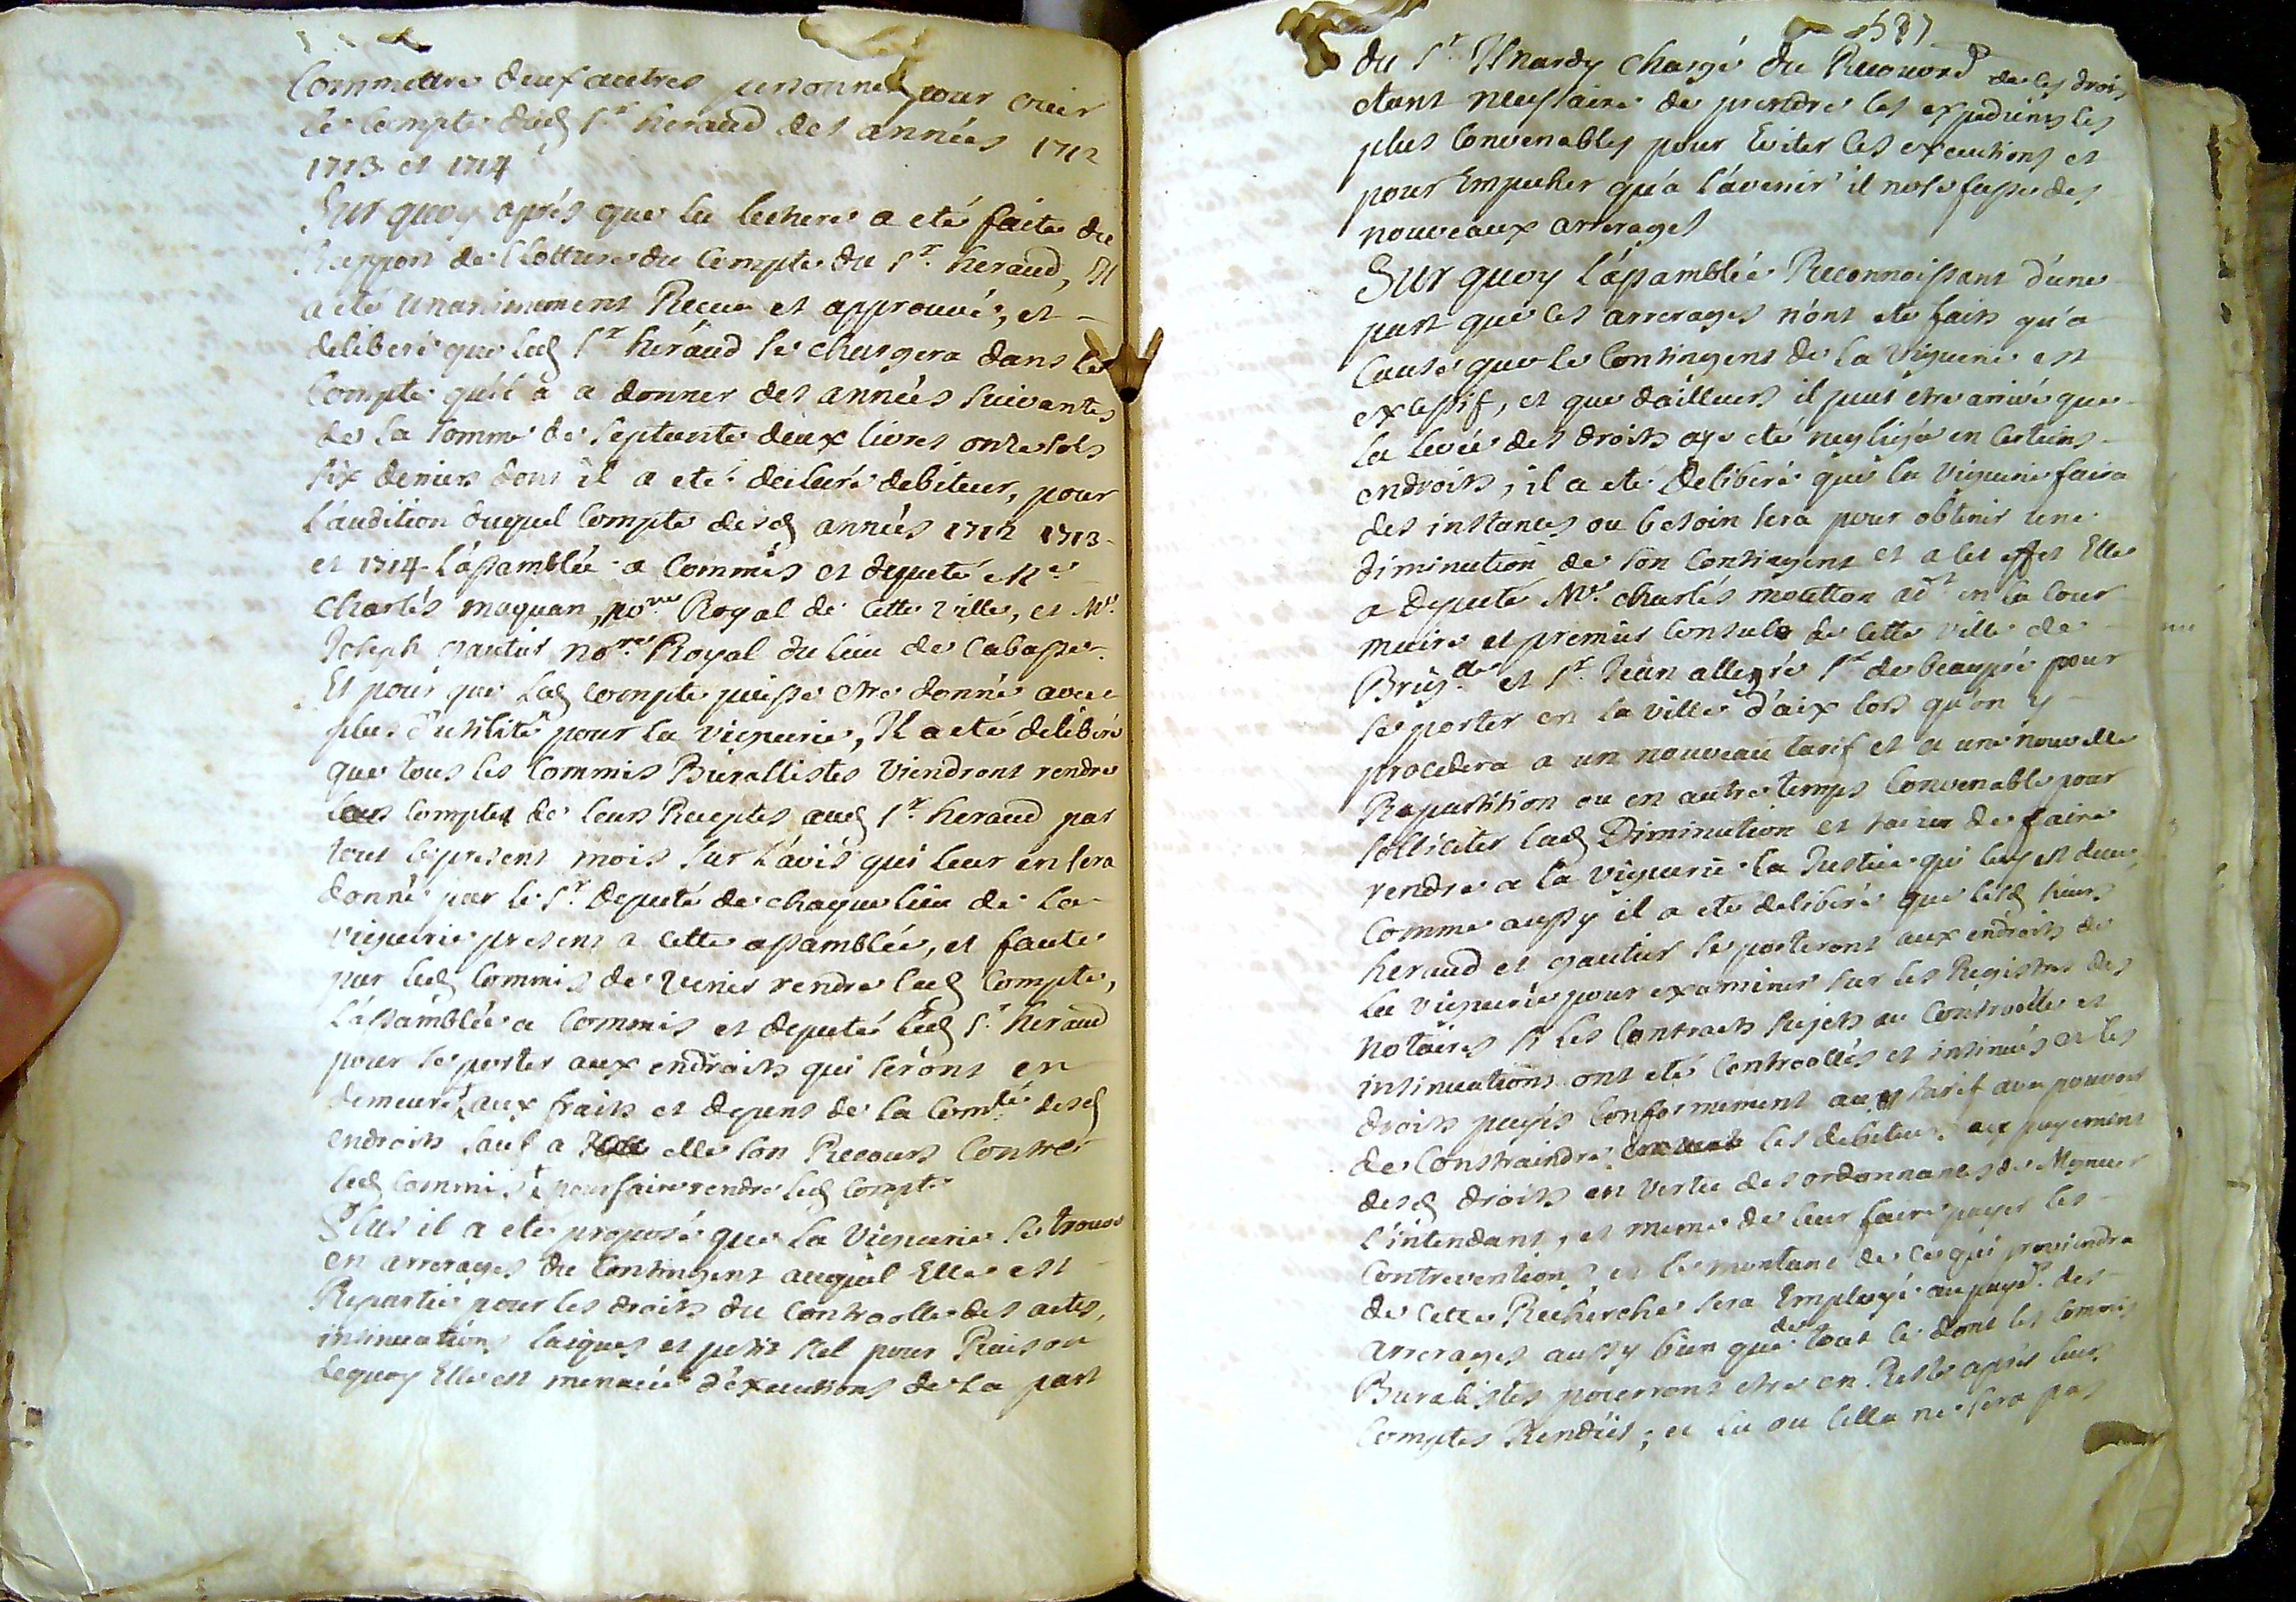 Commettre deux autres personnes pour ouir
le Compte dud Sr heraud des années 1712
1713 et 1714
Sur quoy aprés que la lecture a eté faite du
Rapport de Clotture du Compte du Sr. heraud, Il
a eté unanimement Receu et approuvé, et
deliberé que led Sr heraud se chargera dans le
Compte qu'il a a donner des années suivantes
de la somme de septante deux livres onze sols
six deniers dont il a eté declaré debiteur, pour
l'audition duquel Compte desd années 1712 1713
et 1714 l'assamblée a Commis et deputé Me
Charles maquan, nore Royal de cette ville, et Me
Joseph gautier nore. Royal du lieu de Cabasse
Et pour que led Compte puisse etre donné avec
plus d'utilité pour la viguerie, Il a eté deliberé
que tous les Commis Burallistes viendront rendre
leurs Comptes de leurs Receptes aud Sr. heraud par
tout le present mois sur l'avis qui leur en sera
donné par le Sr. deputé de chaque lieu de la
viguerie present a cette assamblée, et faute
par led Commis de venir rendre led Compte,
l'assamblée a Commis et deputé led Sr. heraud
pour se porter aux endroits qui seront en
demeure aux fraits et depens de la Comté desd
endroits sauf a elle son Recours Contre
led Commis pour faire rendre led Compte
Plus il a eté proposé que la viguerie se trouve
en arrerages du Contingent auquel Elle est
Repartie pour les droits du Controolle des actes,
insinuations laiques et petit scel pour Raison
dequoy Elle est menacée d'executions de la part
587
du Sr. Isnardy chargé du Recouvrt de ces droits
etant necessaire de prendre les expediens les
plus Convenables pour Eviter les executions et
pour Empecher qu'a l'avenir il ne se fasse des
nouveaux arrerages
Sur quoy l'assamblée Reconnoissant d'une
part que les arrerages n'ont eté faits qu'a
Cause que le Contingent de la viguerie est
excessif, et que d'ailleurs il peut etre arrivé que
la levée des droits aye eté negligée en certains
endroits, il a eté deliberé que la viguerie faira
des instances ou besoin sera pour obtenir une
diminution de son Contingent et a cet effet Elle
a deputé Me. charles moutton adt en la Cour
maire et premier Consul de cette ville de
Brig.lle et Sr. Jean allegre Sr de beaupré pour
se porter en la ville d'aix lors qu'on y
procedera a un nouveau tarif et a une nouvelle
Repartition ou en autre temps Convenable pour
solliciter lad Diminution et de faire
rendre a la viguerie la Justice qui luy est deue,
Comme aussy il a eté deliberé que lesd sieurs
heraud et gautier se porteront aux endroits de
la viguerie pour examiner sur les Registres des
notaires si les Contracts sujets au Controolle et
insinuations ont eté Controollés et insinués et les
droits payés Conformement au tarif avec pouvoir
de Constraindre les debiteurs au payement
desd droits en vertu des ordonnances de Mgneur
l'intendant, et meme de leur faire payer les
Contreventions et le montant de ce qui proviendra
de cette Recherche sera Employé au payt. des
arrerages aussy bien que de tout ce dont les Commis
Buralistes pourront etre en Reste aprés leurs
Comptes Rendus; et la ou cella ne sera pas